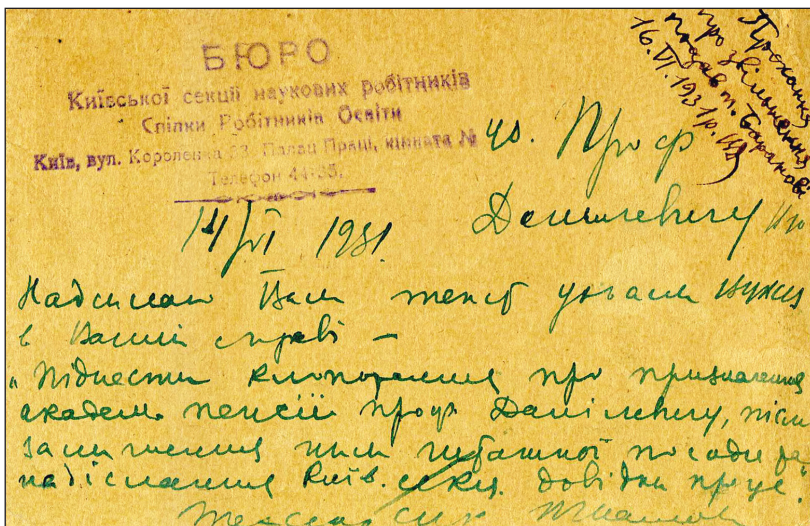 БЮРО
Київської секції наукових робітників
Спілки Робітників Освіти
Київ, вул. Короленка 33, Палац Праці, кімната №
Телефон 44-35.
Прохання
про звільнення
подав т. Баранов
16.VI.1931р.
Проф
Данилевичу
14/VI 1931.
Надсилаю Вам текст ухвали
в Вашій справі –
„Піднести клопотання про призначення
академ. пенсії проф Данілевичу, після
залишення ним штатної посади та
надіслання Київ. секц. довідки про це.